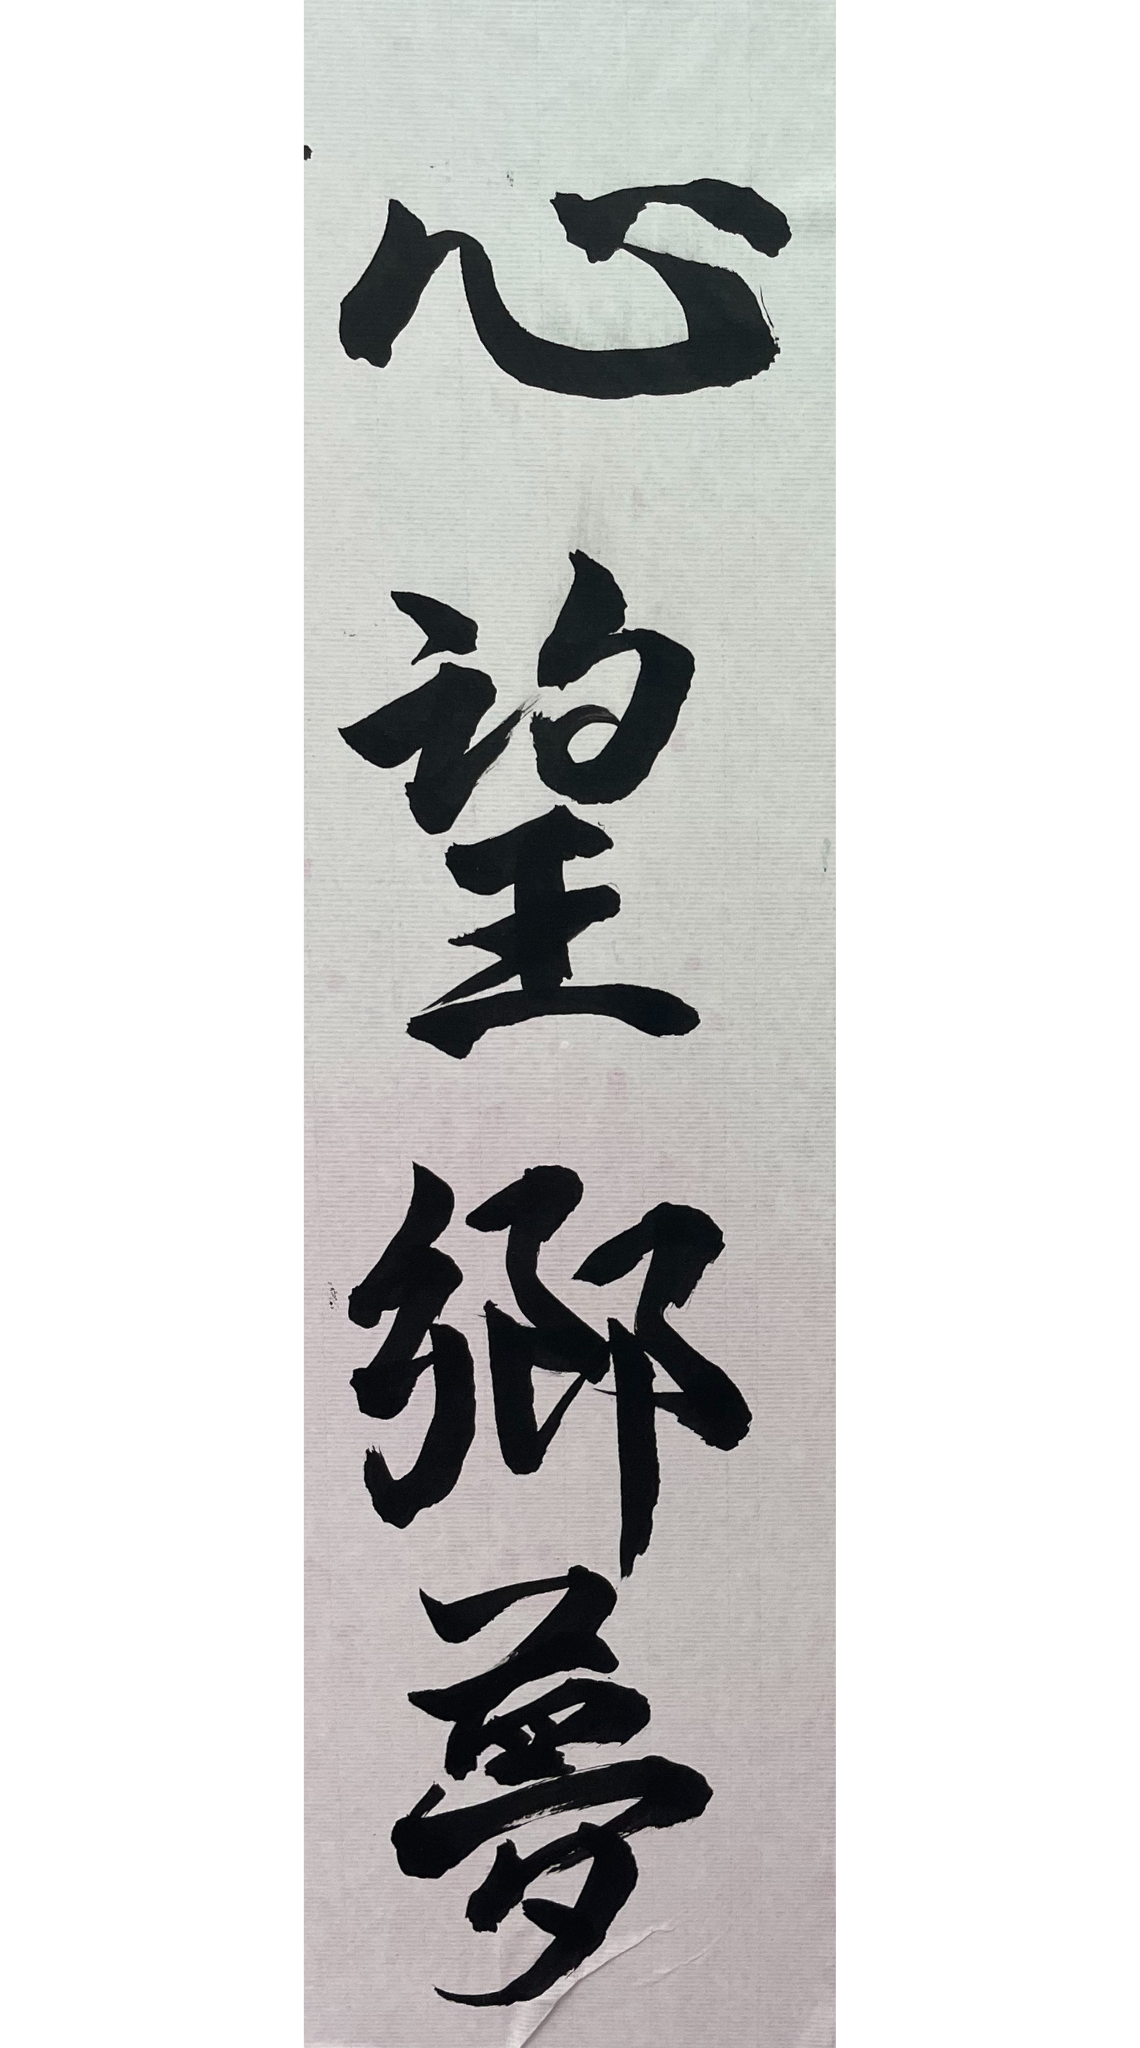 心望鄉夢